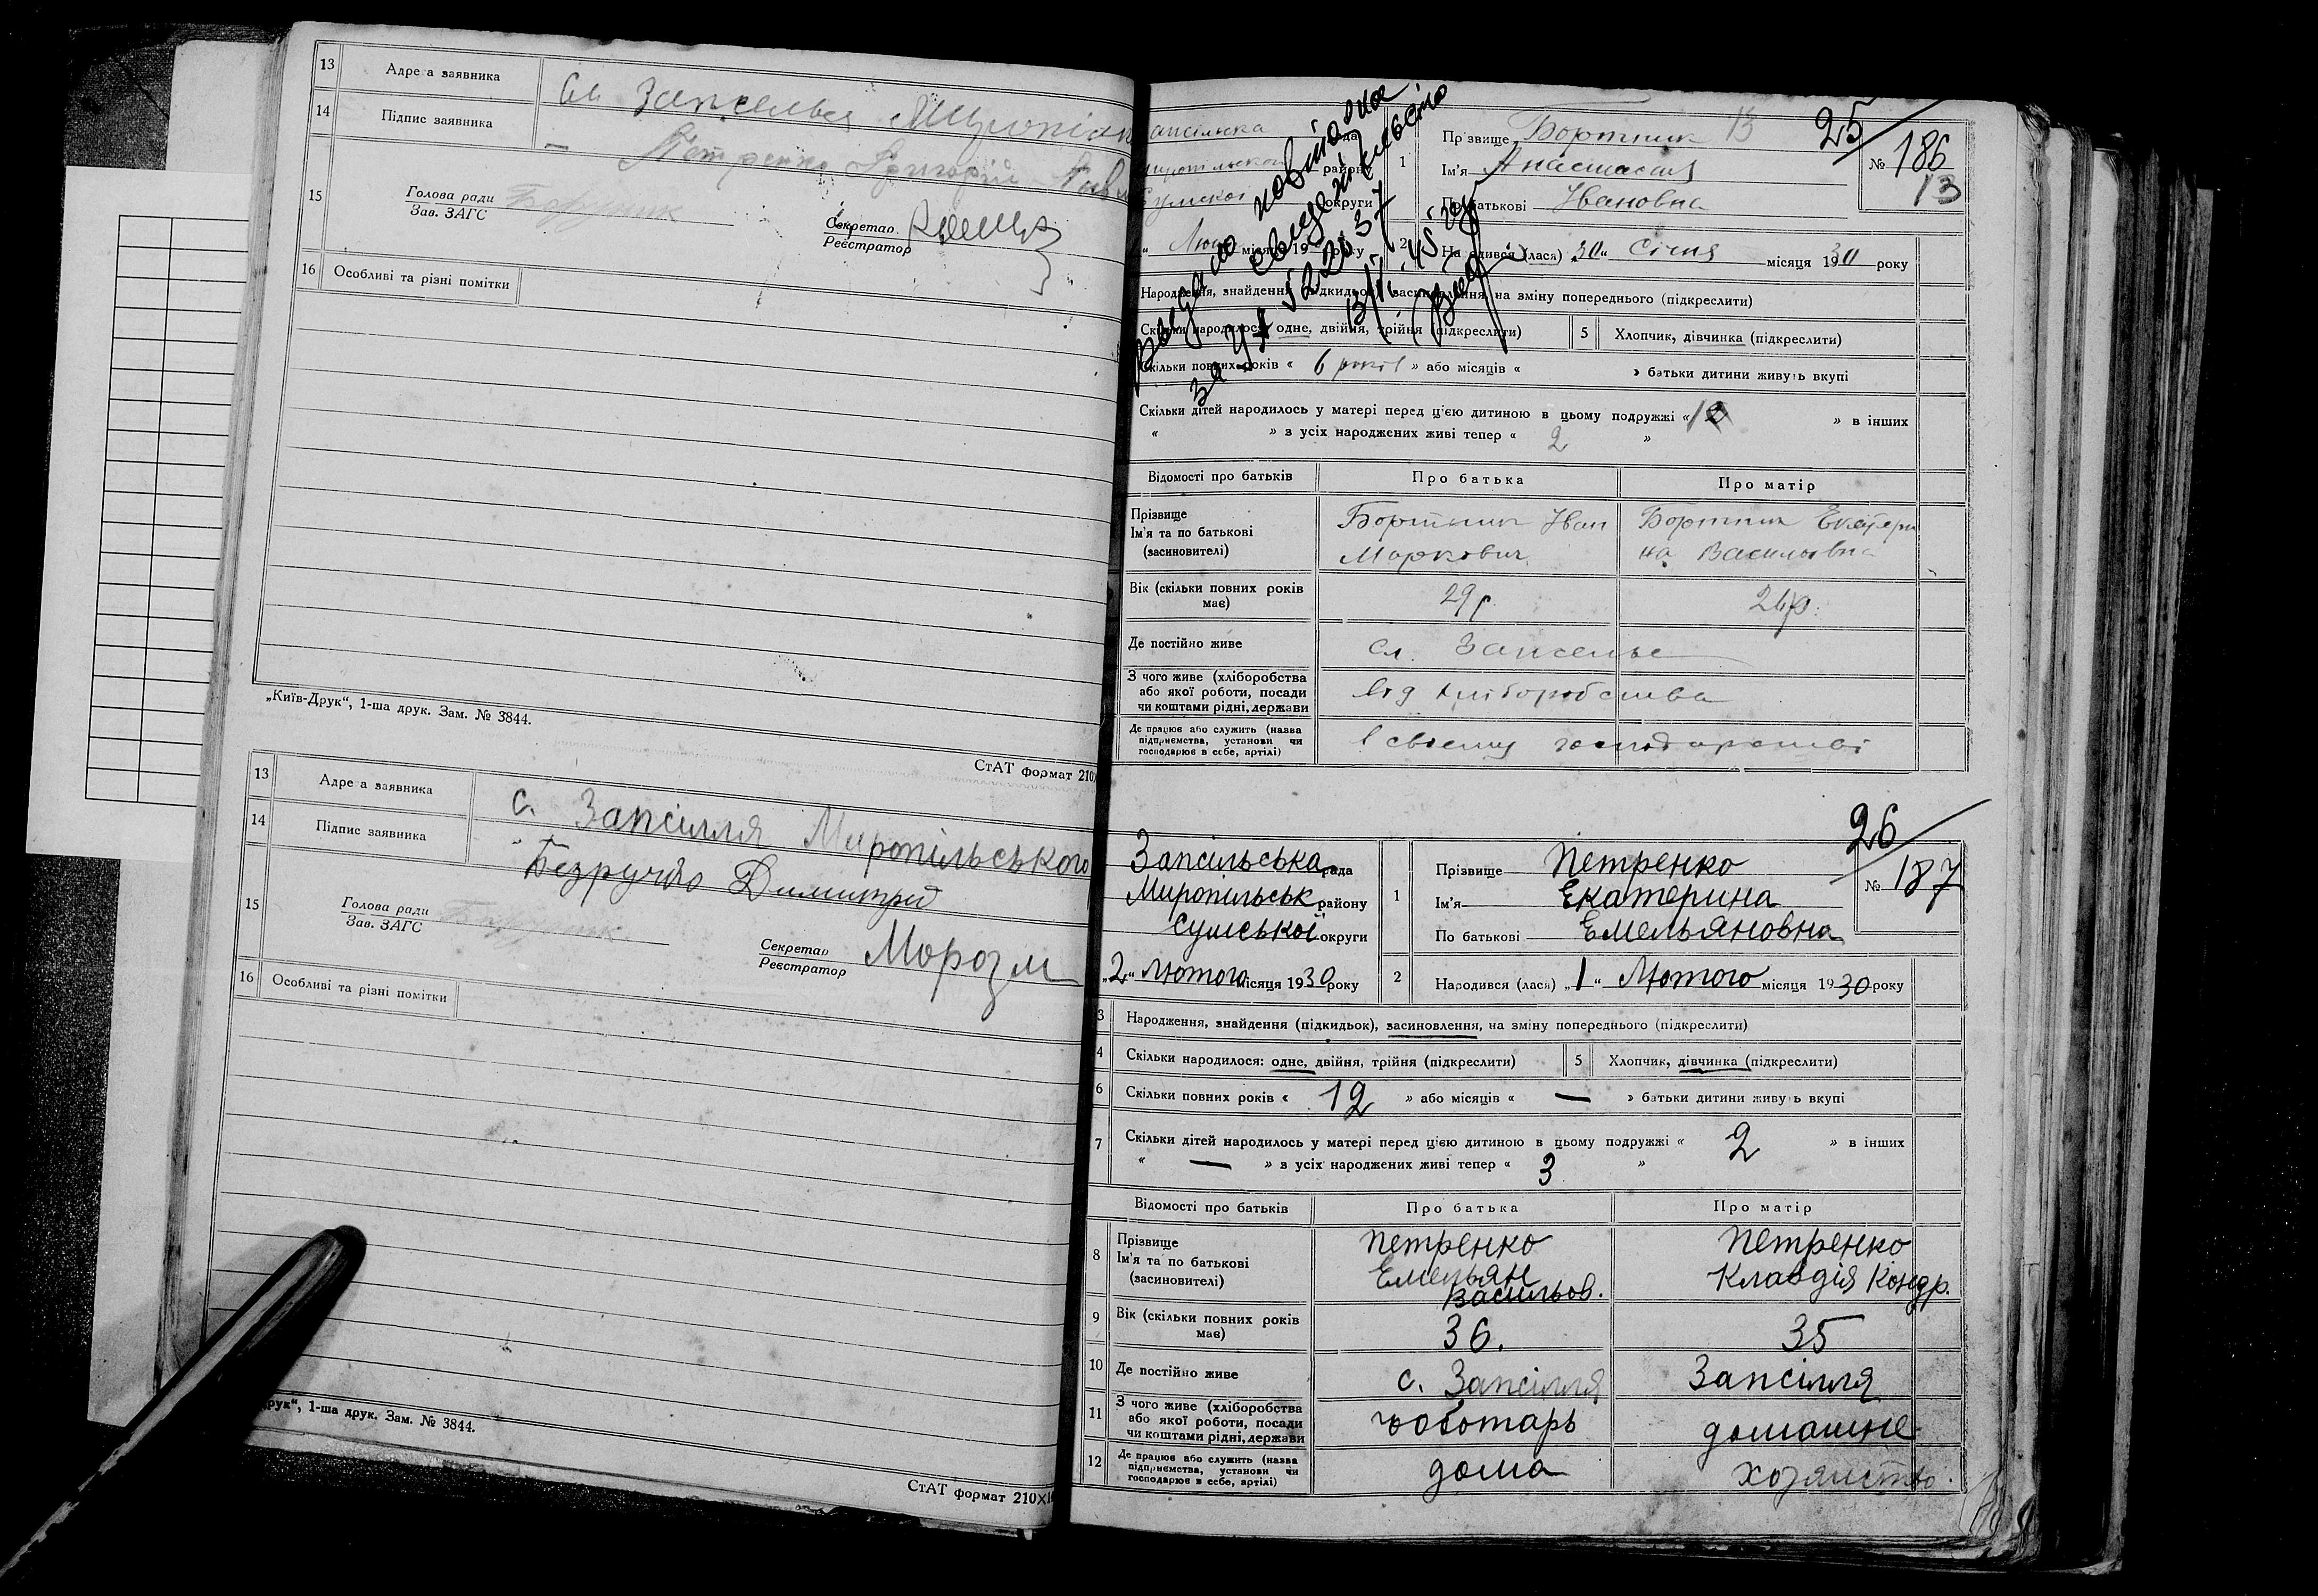 13 Адреса заявника Сл Запселья Миропіл
14 Підпис заявника Петренко Григорій
15 Голова ради
Зав. ЗАГС Бортник
Секретар
Реєстратор
16 Особливі та різні помітки
„Київ-Друк“, 1-ша друк. Зам. № 3844.
СтАТ формат 210×
13 Адреса заявника с. Запсілля Миропільського
14 Підпис заявника Безручко Димитрій
15 Голова ради
Зав. ЗАГС Бортник
Секретар
Реєстратор Мороз
16 Особливі та різні помітки
друк“, 1-ша друк. Зам. № 3844.
СтАТ формат 210×1
25
апсільска рада
району
Сумскої округи
Лют місяця 19 року
Видано повторное
свидетельство
1 Прізвище Бортник 13
Ім'я Анастасия
По батькові Івановна
№ 186
13
2 Народився (лася) „30“ Січня місяця 1930 року
Народження, знайдення (підкидьок), засиновлення, на зміну попереднього (підкреслити)
Скільки народилося: одне, двійня, трійня (підкреслити) 5 Хлопчик, дівчинка (підкреслити)
Скільки повних років « 6 років » або місяців « » батьки дитини живуть вкупі
Скільки дітей народилось у матері перед цією дитиною в цьому подружжі « » в інших
« » з усіх народжених живі тепер « 2 »
Відомості про батьків Про батька Про матір
Прізвище
Ім'я та по батькові
(засиновителі)
Бортник Іван
Маркович
Бортник Екатери
на Васильовна
Вік (скільки повних років
має) 29 р.
Де постійно живе сл. Запселье
З чого живе (хліборобства
або якої роботи, посади
чи коштами рідні, держави від хліборобства
Де працює або служить (назва
підприємства, установи чи
господарює в себе, артілі) в своєму господарстві
26
Запсільська рада
Миропільськ району
Сумської округи
„2“ Лютого місяця 1930 року
1 Прізвище Петренко
Ім'я Екатерина
По батькові Емельяновна
№ 187
2 Народився (лася) „1“ Лютого місяця 1930 року
3 Народження, знайдення (підкидьок), засиновлення, на зміну попереднього (підкреслити)
4 Скільки народилося: одне, двійня, трійня (підкреслити) 5 Хлопчик, дівчинка (підкреслити)
6 Скільки повних років « 12 » або місяців « — » батьки дитини живуть вкупі
7 Скільки дітей народилось у матері перед цією дитиною в цьому подружжі « 2 » в інших
« — » з усіх народжених живі тепер « 3 »
Відомості про батьків Про батька Про матір
8 Прізвище
Ім'я та по батькові
(засиновителі)
Петренко
Емельян
Васильов.
Петренко
Клавдія Кондр.
9 Вік (скільки повних років
має) 36. 35
10 Де постійно живе с. Запсілля Запсілля
11 З чого живе (хліборобства
або якої роботи, посади
чи коштами рідні, держави чоботарь домашне
12 Де працює або служить (назва
підприємства, установи чи
господарює в себе, артілі) дома хозяиство.